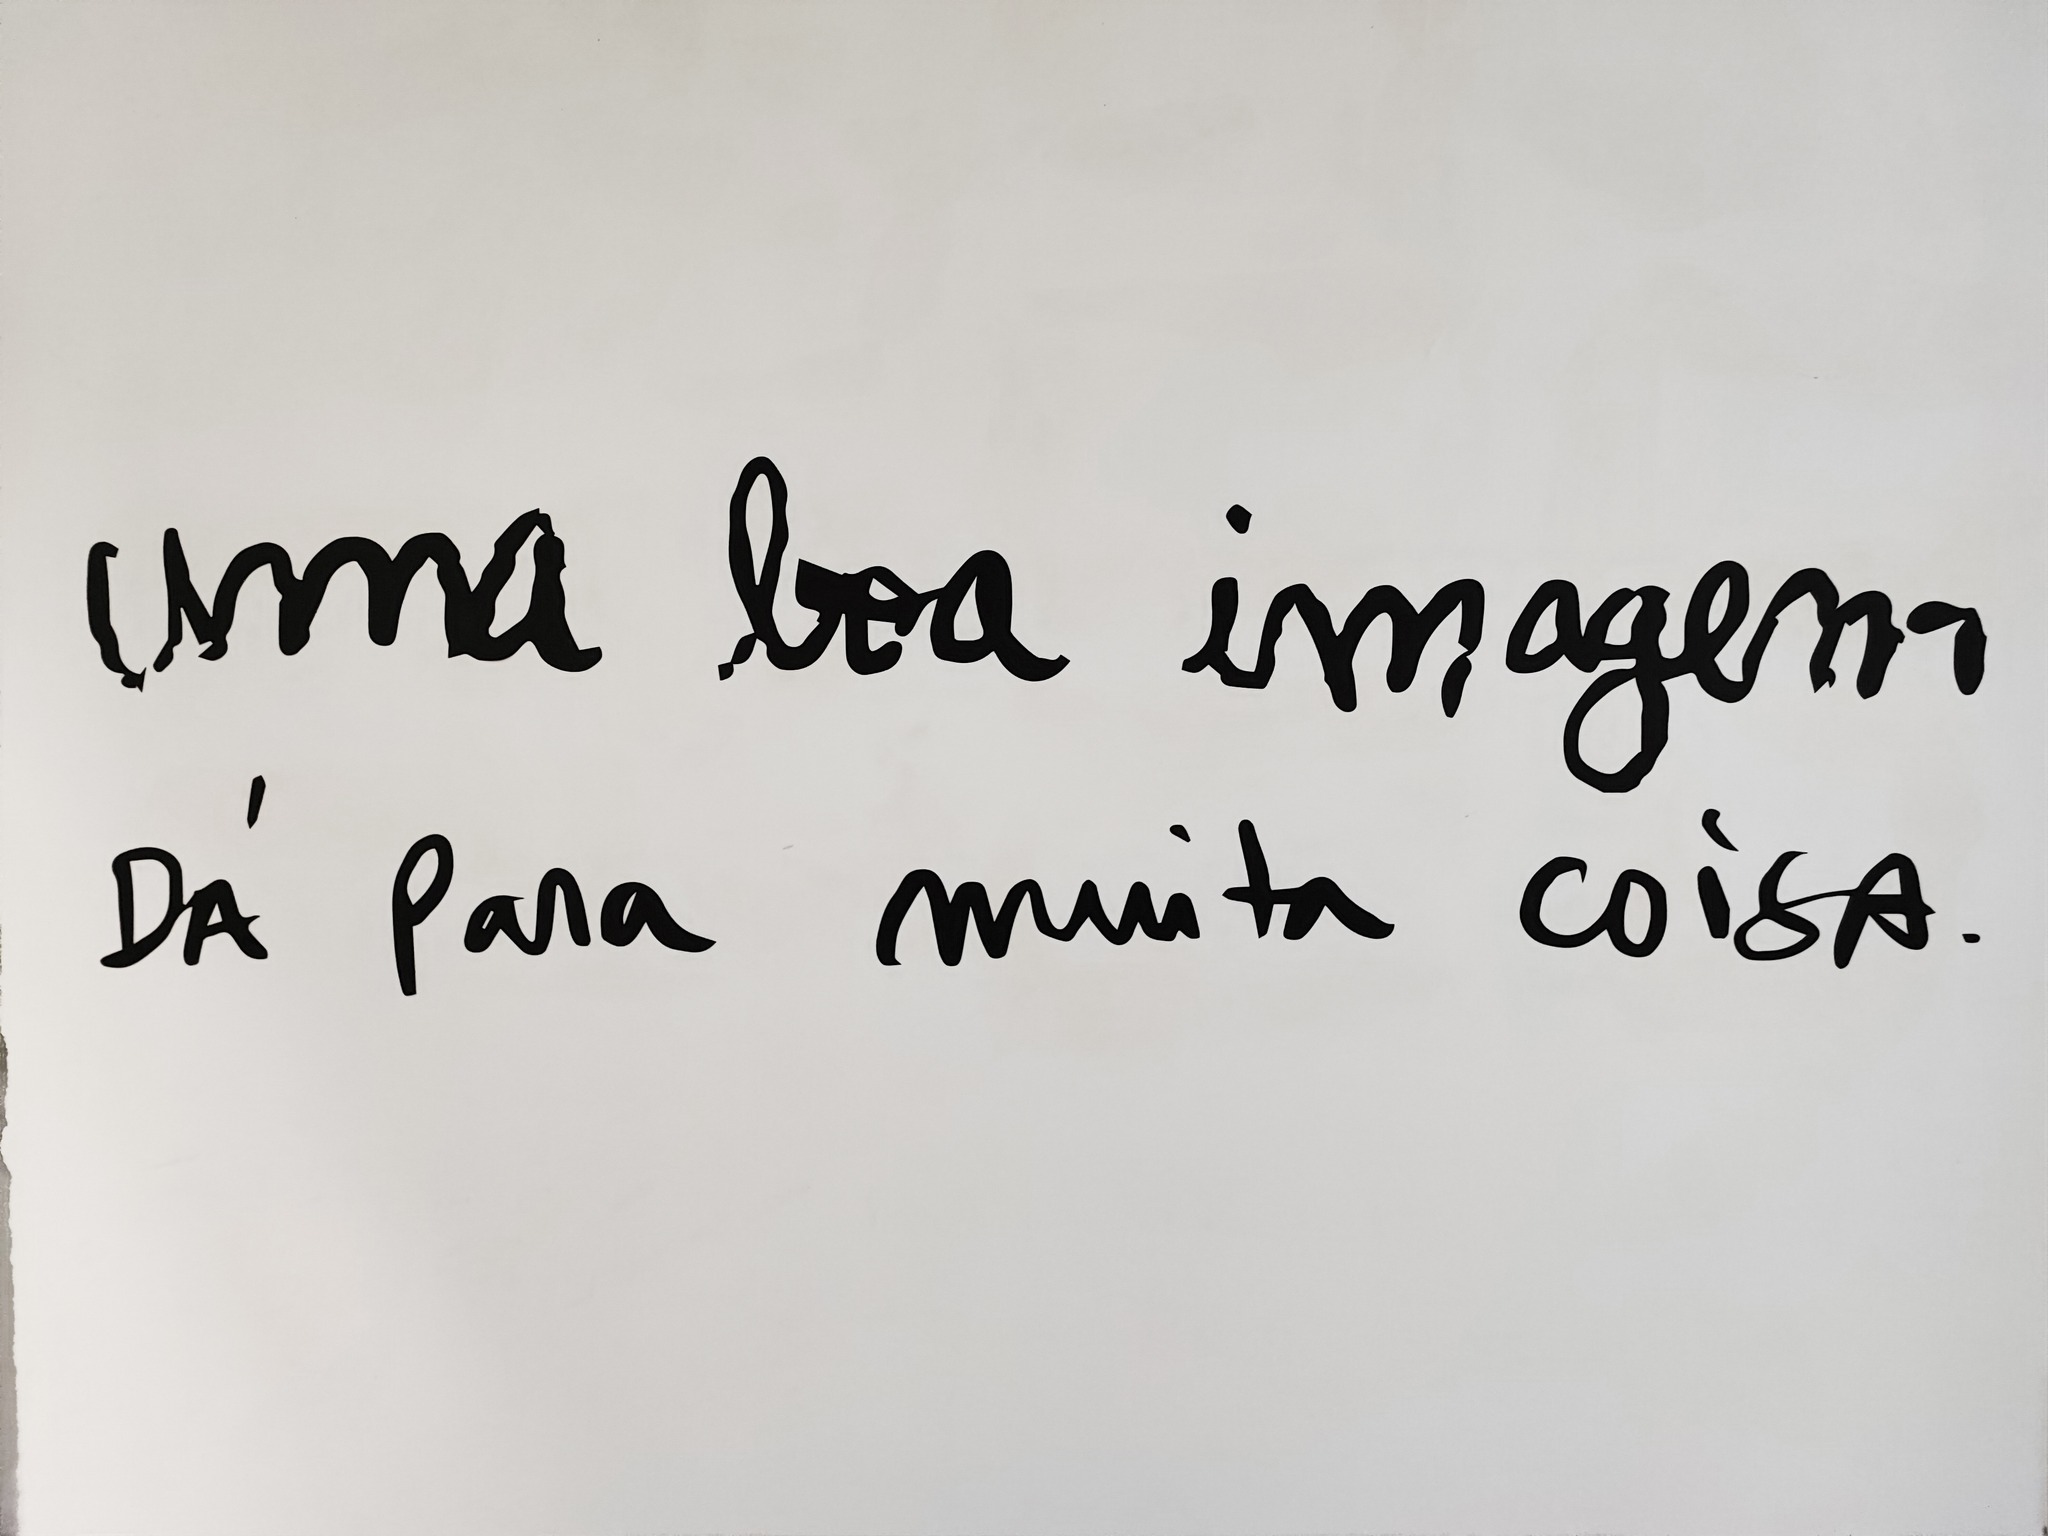 uma boa imagem
DÁ para muita coisA.